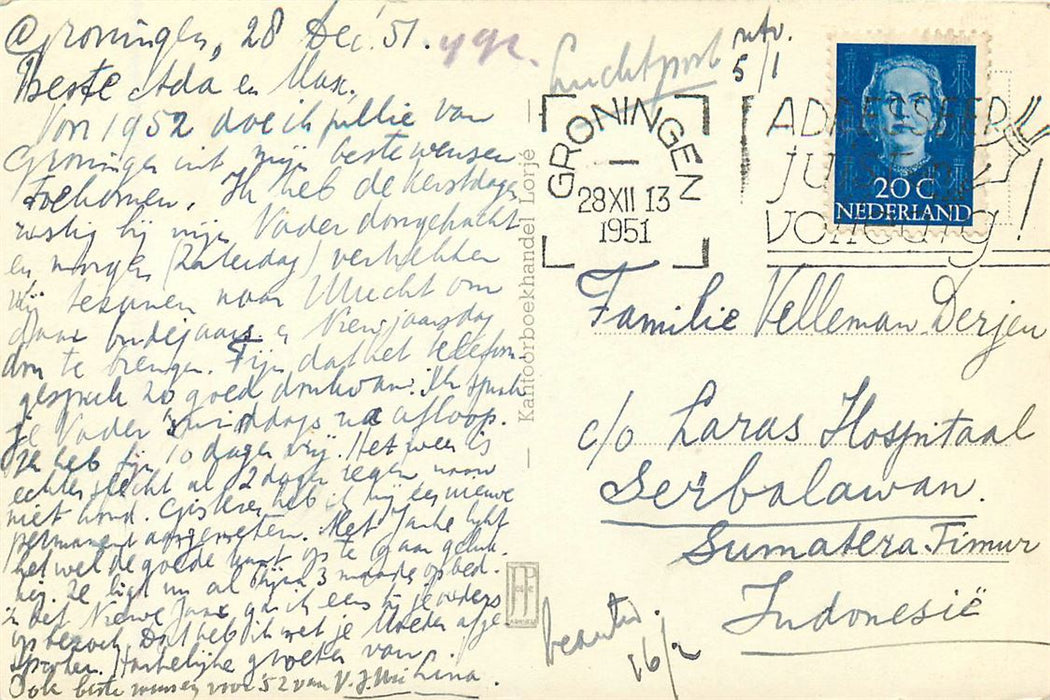 Groningen, 28 Dec. '51.
Beste Ada en Max.
Voor 1952 doe ik jullie van
Groningen uit mijn beste wensen
toekomen. Ik heb de Kerstdagen
rustig bij mijn Vader doorgebracht
en morgen (Zaterdag) vertrekken
wij tezamen naar Utrecht om
daar oudejaars en Nieuwjaarsdag
door te brengen. Fijn dat het telefoon-
gesprek zo goed doorkwam. Ik sprak
je Vader 's middags na afloop.
Ik heb fijn 10 dagen vrij. Het weer is
echter slecht al 2 dagen regen
niet koud. Gisteren heb ik mij een nieuwe
permanent aangemeten. Met Janke lijkt
het wel de goede kant op te gaan geluk-
kig. Ze ligt nu al bijna 3 maanden op bed.
in het Nieuwe Jaar ga ik eens bij je ouders
op bezoek. Dat heb ik met je Moeder afge-
sproken. Hartelijke groeten van
Ook beste wensen voor '52 van V. J. Lina.
Luchtpost
5/1
GRONINGEN
28 XII 13
1951
ADRESSEER
JUIST EN
VOLLEDIG!
20 C
NEDERLAND
Kantoorboekhandel Lorjé
Familie Velleman Derjeu
c/o Laras Hospitaal
Serbalawan.
Sumatera-Timur
Indonesië
16/2
JP